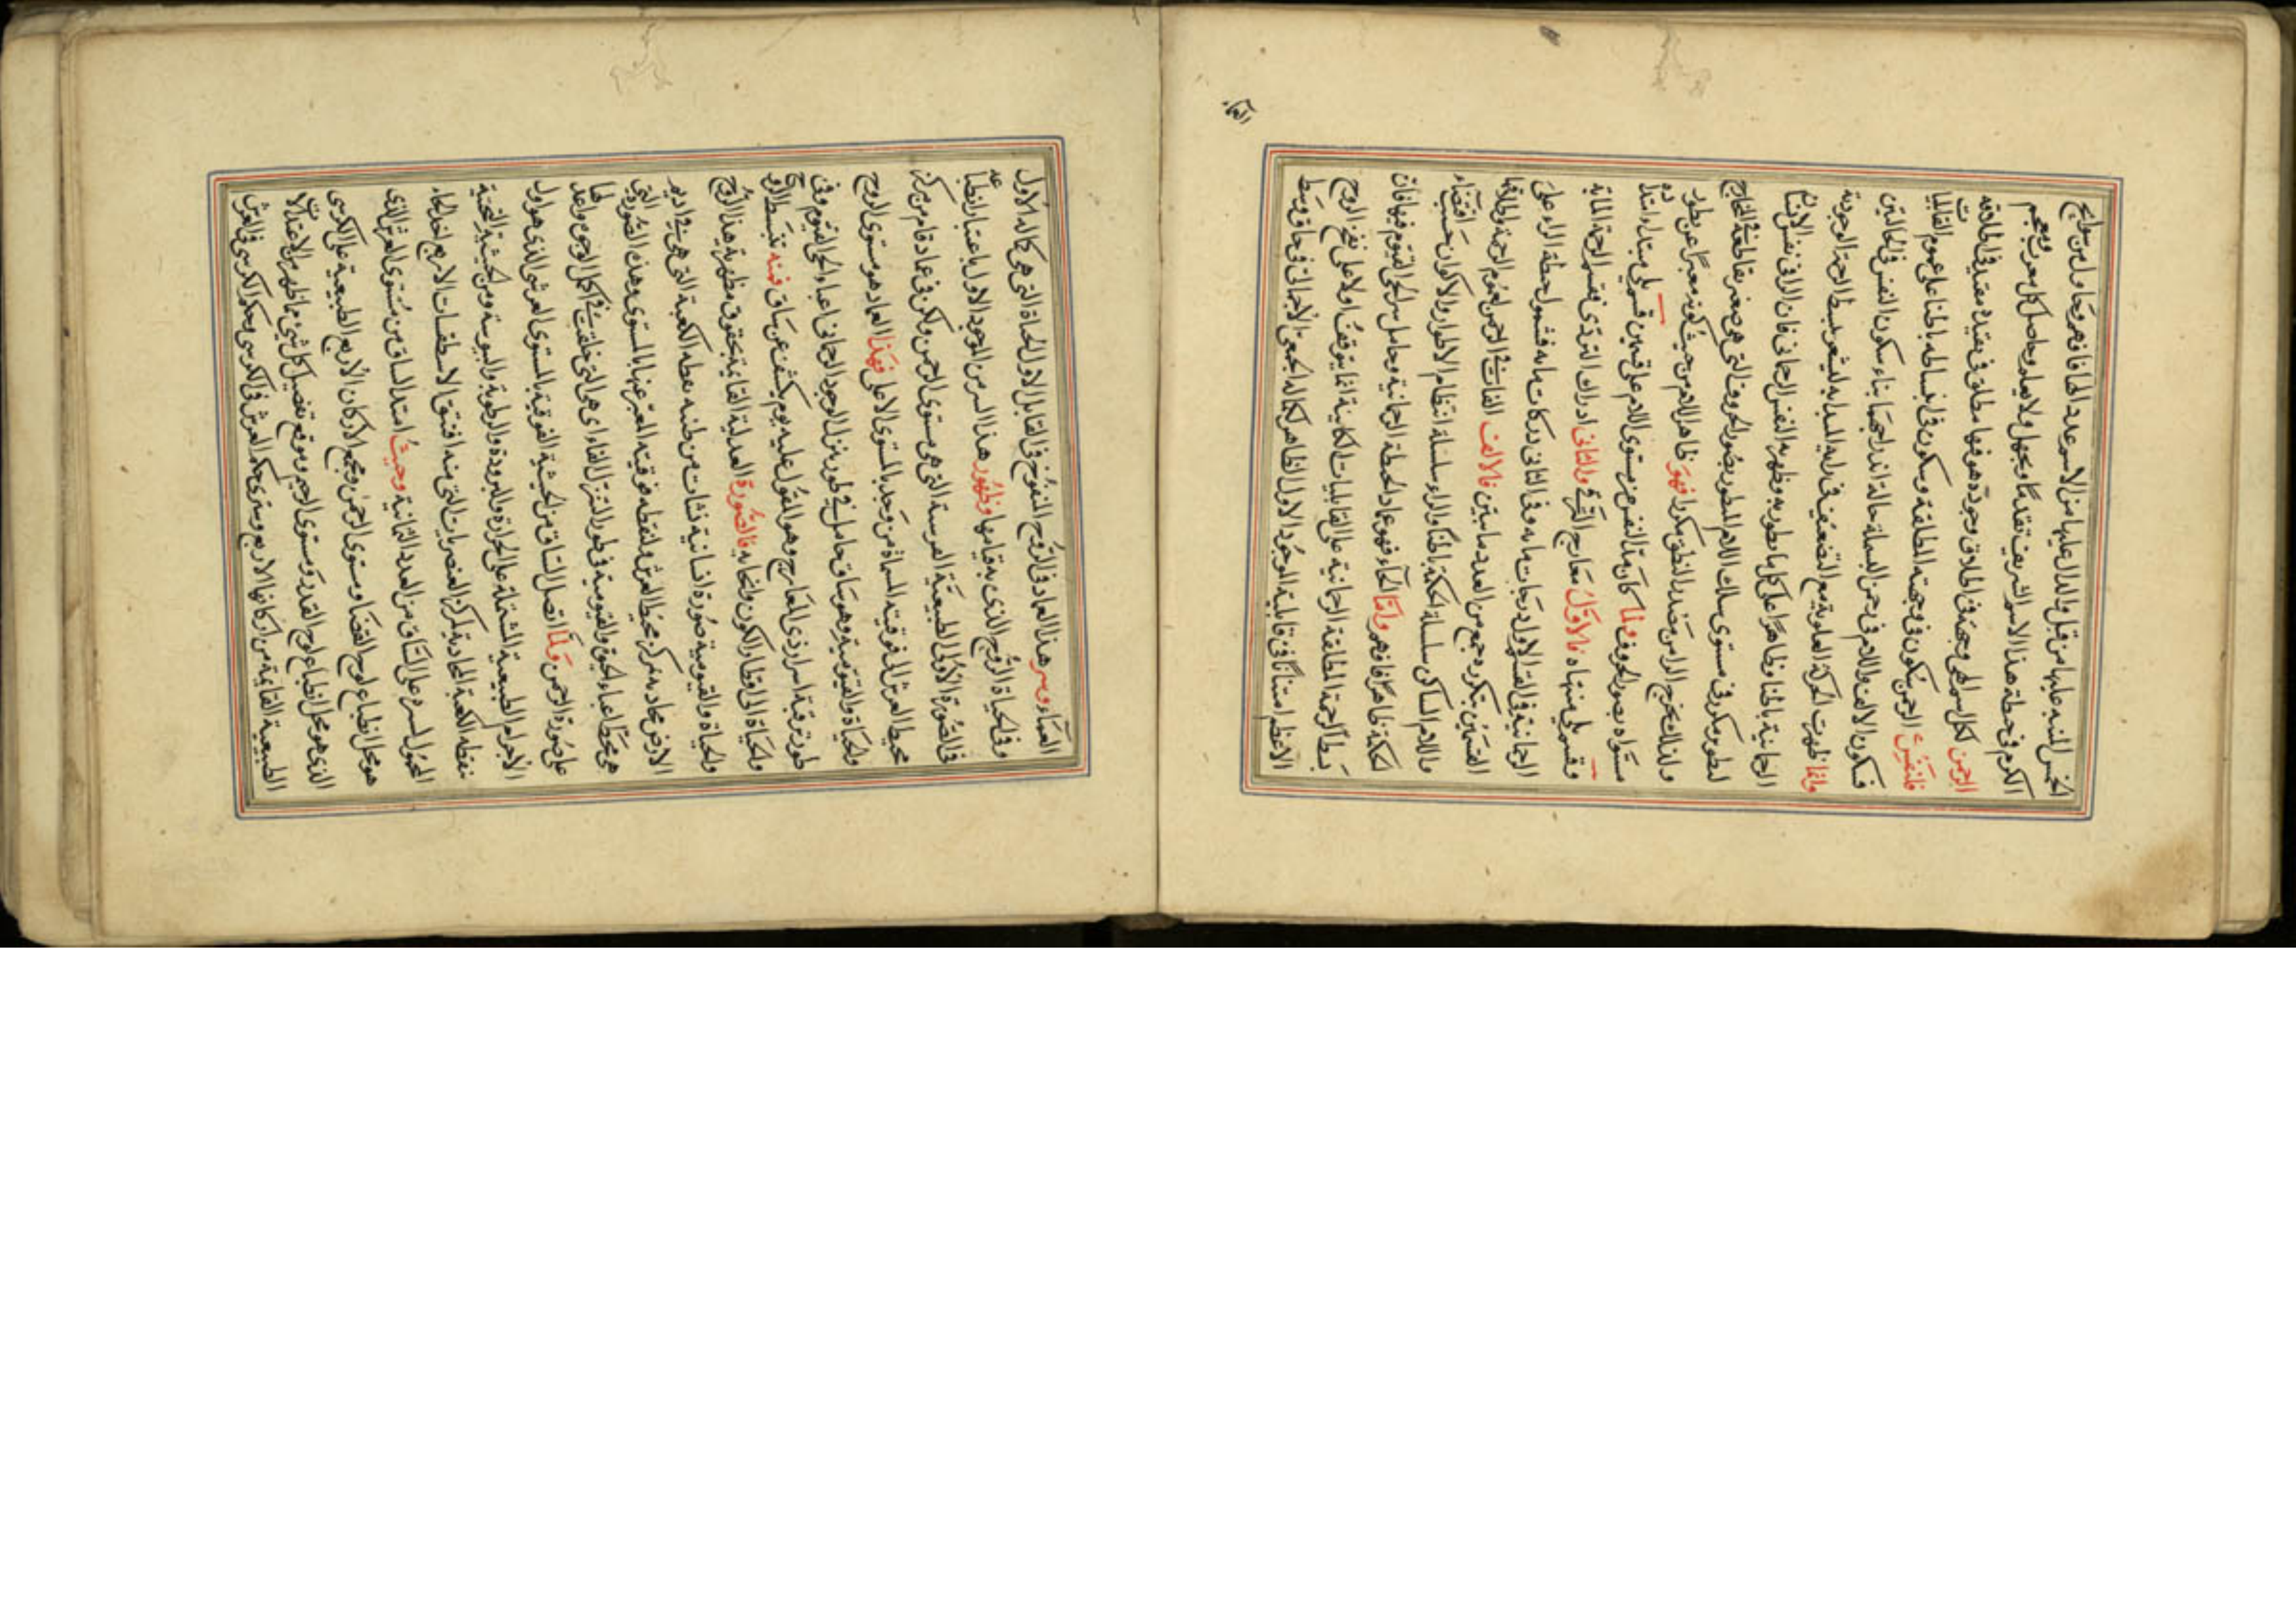 الخمس المنبه عليها من قبل والدال عليها من الاسم عدد الحا فافهم وحاول من سوابح
الكرم في حيطة هذا الاسم الشريف تقدما وبجهل ولا يعلم وحاصل كل معرب ومعجم
الرحمن لكل اسم الهي وجهة في اطلاق وجوده هو فيها مطلق في تقيده مقيد في اطلاقه
فلنفس الرحمن سكون في وجهته المطلقة وسكون في انبساطه باطنا على عموم القابليات
فسكون الالف واللام في رحمن البسملة حالة اندراجهما بناء سكون النفس في الحالتين
وانما ظهرت الحركة العلوية مع التضعيف في رايه المبدا به ليشعر ببسط الرحمة الوجودية
الرحمانية باطنا وظاهرا على كل ما يطور به وظهر به النفس الرحماني فان الرا في نفس الانسانى
لتطوره مكرر في مستوى سلك اللام المطور بصور الحروف التي هو مصغر بقاطعة في المخارج
ولذلك يخرج الرا من مصدر النطق مكررا فهو ظاهر اللام من حيث كونه معبرا عن تطوره
مستواه بصور الحروف ولما كان مد النفس من مستوى اللام على قسمين قسم يلي مبتدا امتداده
وقسم يلي منتهاه فالاول معارج الترقي والثاني ادراك التردي قسم الرحمة المائة
الرحمانية في القسم الاول درجات مايه وفي الثاني دركات مايه فشمول حيطة الراء على
القسمين بتكرره جمع من العدد مايتين فالالف الفايت في الرحمن لعموم الرحمة واطلاقها
واللام الساكن سلسلة الحكمة باطنا والراء سلسلة انتظام الاطوار والاكوان حسب اقتضاء
الحكمة ظاهرا فافهم واما الحاء فهو عماد الحيطة الرحمانية وحامل سر الحي القيوم فيها فان
بسط الرحمة المطلقة الرحمانية على القابليات الكاينة انما يتوقف اولا على نفخ الروح
الاعظم امتنانا في قابلية الوجود الاول الظاهر لكماله الجمعي الاجمالي في حاق وسط
العماء
العماء وسر هذا العماد في الروح المنفوخ في القابل الاول الحياة التي هي كماله الاول
وفي الحياة الروح الذي به قيامها وظهور هذا السر من الوجود الاول باعتبار انطباعه
في الصورة الاولى الطبيعية العرسية التي هي مستوى الرحمن ولكن في عماد قام من مركز
محيط العرش الى فوقيته المسماة من وجه بالمستوى الاعلى فهذا العماد هو مستوى الروح
والحياة والقيومية وهو ساق حامل في طور تنزل الوجود الرحماني اعباء الحي القيوم وفي
طور ترقية اسرار ذي المعارج وهو المقول عليه يوم يكشف عن ساق فمنه تنبسط الروح
والحياة الى اقطار الكون وانحايه فالصورة العدلية القايمة بحقوق مظهرية هذا الروح
والحياة والقيومية صورة انسانية نشات من طينة نقطة الكعبة التي هي في اديم
الارض محاذية مركز محيط العرش ولنقطه فوقيته المعبر عنها بالمستوى وهذه الصورة هي التي
هي محط اعباء الحق والقيومية في طور التنزل القاء اي هي التي خلقت في اكمل الوجوه واعدلها
على صورة الرحمن ولما اتصل الساق من الحيثية الفوقية بالمستوى العرشي الذي هو اول
الاجرام الطبيعية المشتملة على الحرارة والبرودة والرطوبة واليبوسة ومن الحيثية التحتية
بنقطه الكعبة المحاذية لمركز العنصريات التي منه افتتق الاسطقسات الاربع اخذ الحاء
المحوّل لسره على الساق من العدد الثمانية وحيث امتد الساق من مستوى العرش الذي
هو محل انطباع لوح القضا ومستوى الرحمن ومجمع الاركان الاربع الطبيعية على الكرسي
الذي هو محل انطباع لوح القدر ومستوى الرحيم وموقع تفصيل كل شي بما ظهر من الاعتدالات
الطبيعية القايمة من اركانها الاربع وسرى حكم العرش في الكرسي وحكم الكرسي في العرش